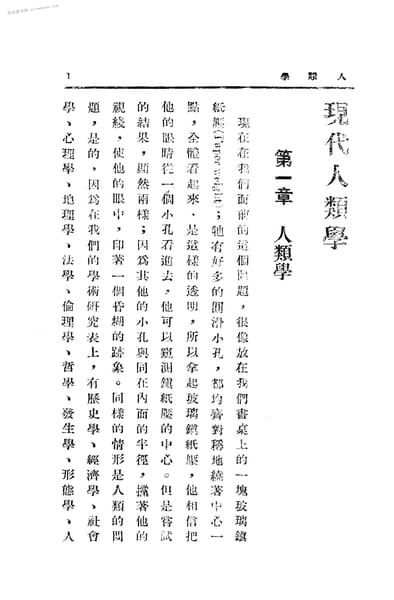 人類學
1
現代人類學
第一章 人類學
現在在我們面前的這個問題，很像放在我們書桌上的一塊玻璃鎮
紙壓(Paper weight)；牠有好多的圓滑小孔，都均齊對稱地繞著中心一
點，全體看起來，是這樣的透明，所以拿起玻璃鎮紙壓，他相信把
他的眼睛從一個小孔看進去，他可以窺測鎮紙壓的中心。但是嘗試
的結果，顯然兩樣；因爲其他的小孔與同在內面的半徑，擋著他的
視綫，使他的眼中，印著一個昏糊的跡象。同樣的情形是人類的問
題，是的。因爲在我們的學術研究表上，有歷史學、經濟學、社會
學、心理學、地理學、法學、倫理學、哲學、發生學、形態學、人